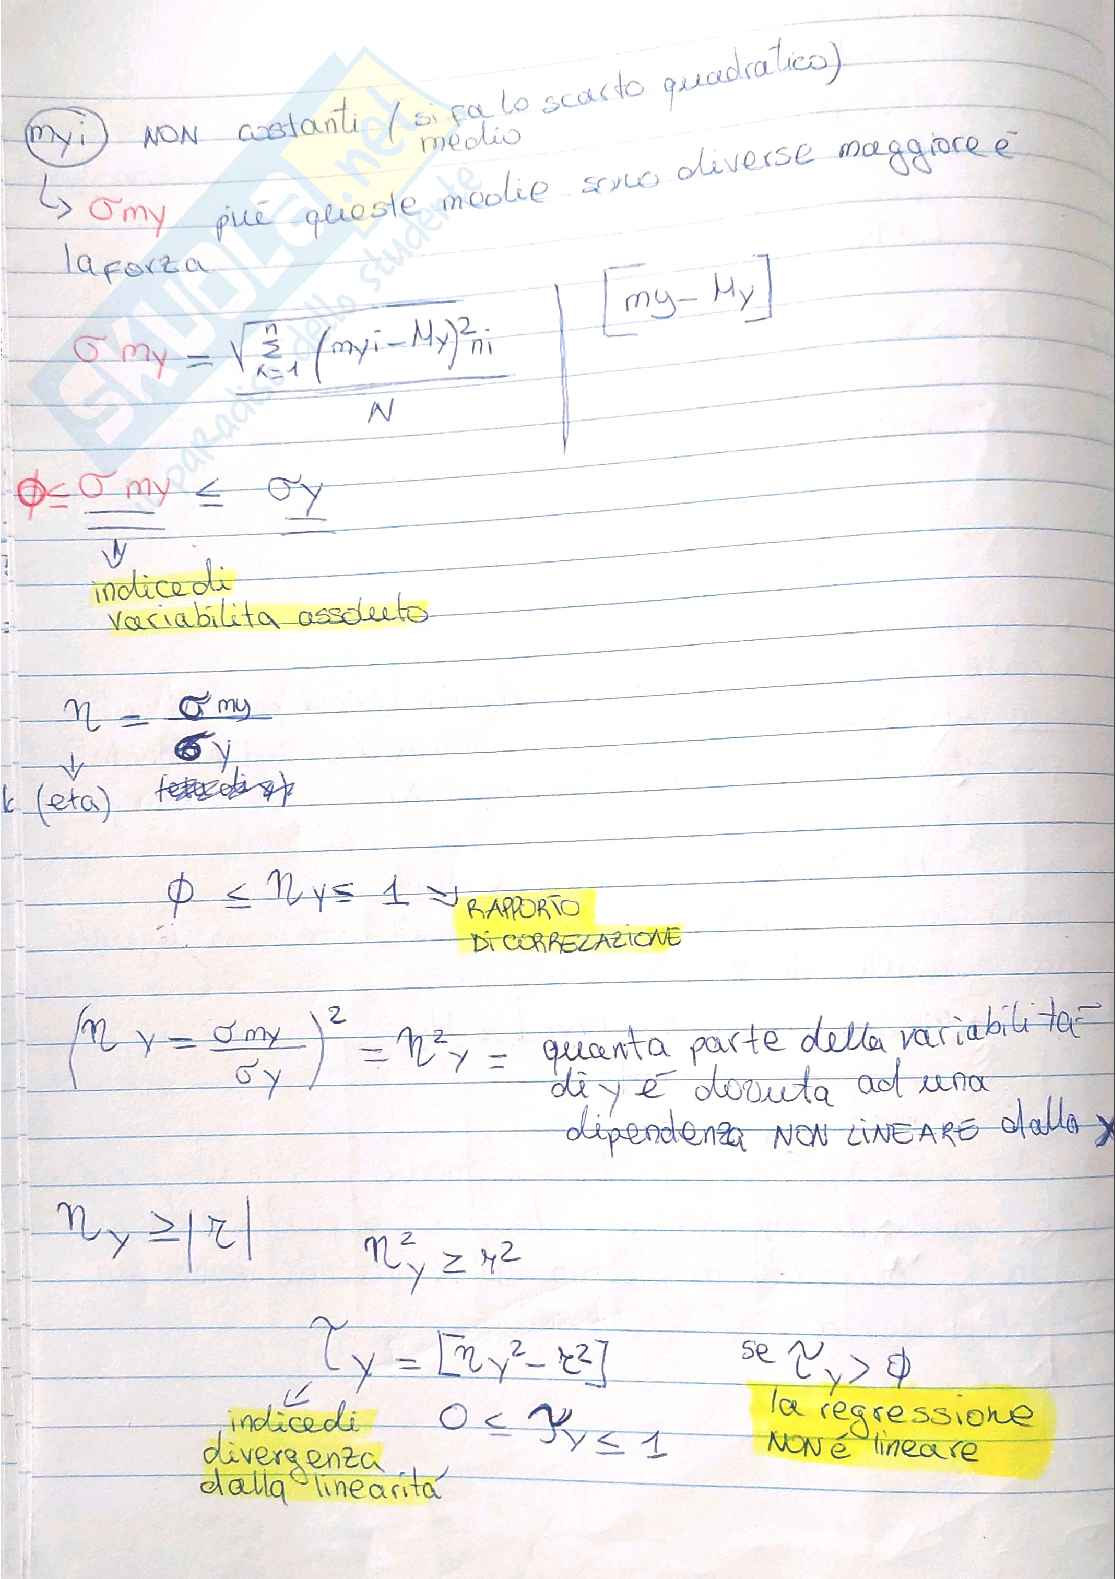 myi NON costanti (si fa lo scarto quadratico)
medio
↳ σmy piú queste medie sono diverse maggiore é
la forza
σmy = √Σ(myi - My)² ni / N | [my - My]
n
k=1
ϕ ≤ σmy ≤ σy
indice di
variabilita assoluto
η = σmy / σy
(eta)
ϕ ≤ ηy ≤ 1 → RAPPORTO
Di CORRELAZIONE
(ηy = σmy / σy)² = η²y = quanta parte della variabilitá
di y é dovuta ad una
dipendenza NON LiNEARE dalla x
ηy ≥ |r| η²y ≥ r²
τy = [ηy² - r²] se τy > ϕ
indice di 0 ≤ τy ≤ 1 la regressione
divergenza NON é lineare
dalla linearitá
SKUOLA.net
il paradiso dello studente